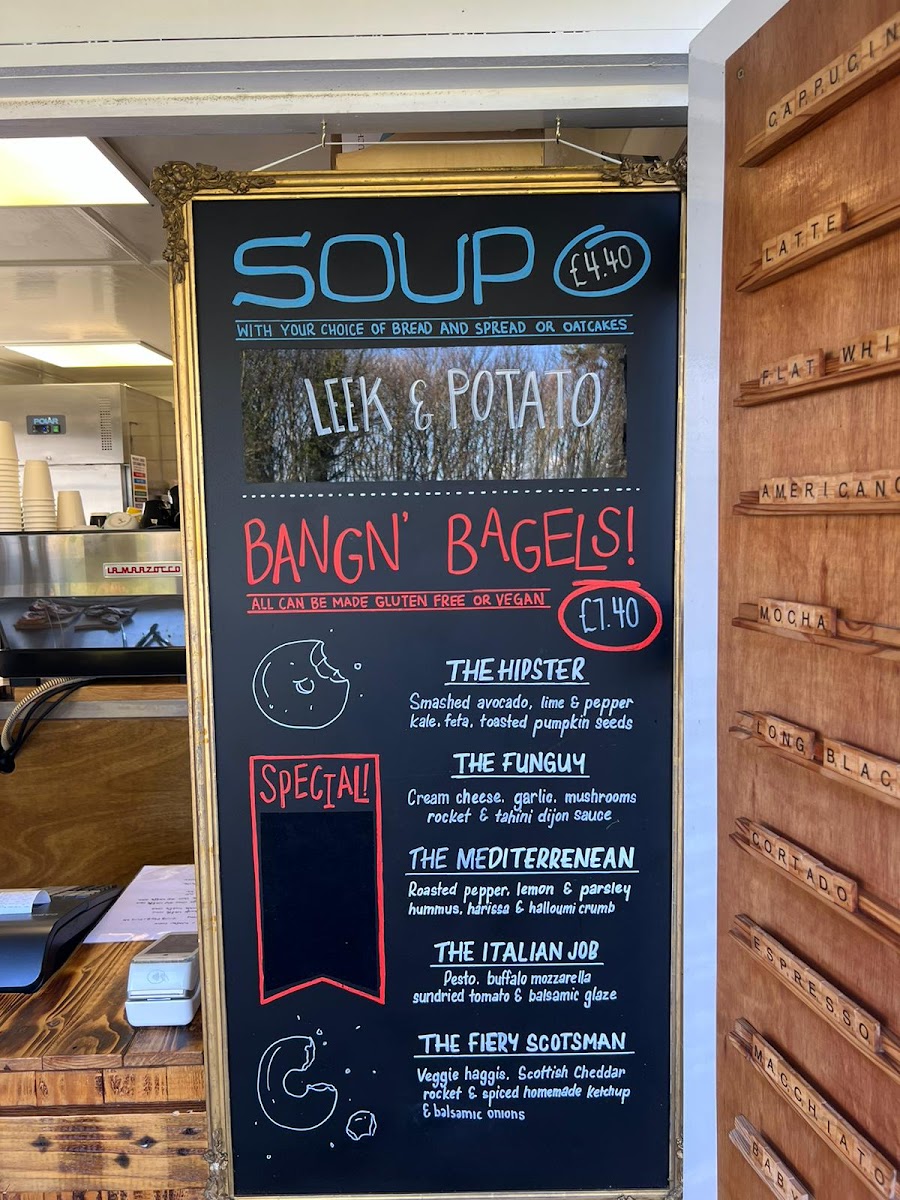 SOUP £4.40
WITH YOUR CHOICE OF BREAD AND SPREAD OR OATCAKES
LEEK & POTATO
BANGN' BAGELS!
ALL CAN BE MADE GLUTEN FREE OR VEGAN
£7.40
THE HIPSTER
Smashed avocado, lime & pepper
kale, feta, toasted pumpkin seeds
THE FUNGUY
Cream cheese, garlic, mushrooms
rocket & tahini dijon sauce
THE MEDITERRENEAN
Roasted pepper, lemon & parsley
hummus, harissa & halloumi crumb
THE ITALIAN JOB
Pesto, buffalo mozzarella
sundried tomato & balsamic glaze
THE FIERY SCOTSMAN
Veggie haggis, Scottish Cheddar
rocket & spiced homemade ketchup
& balsamic onions
SPECIAL!
CAPPUCIN
LATTE
FLAT WHI
AMERICANO
MOCHA
LONG BLAC
CORTADO
ESPRESSO
MACCHIATO
BABY
POLAR
LA MARZOCCO